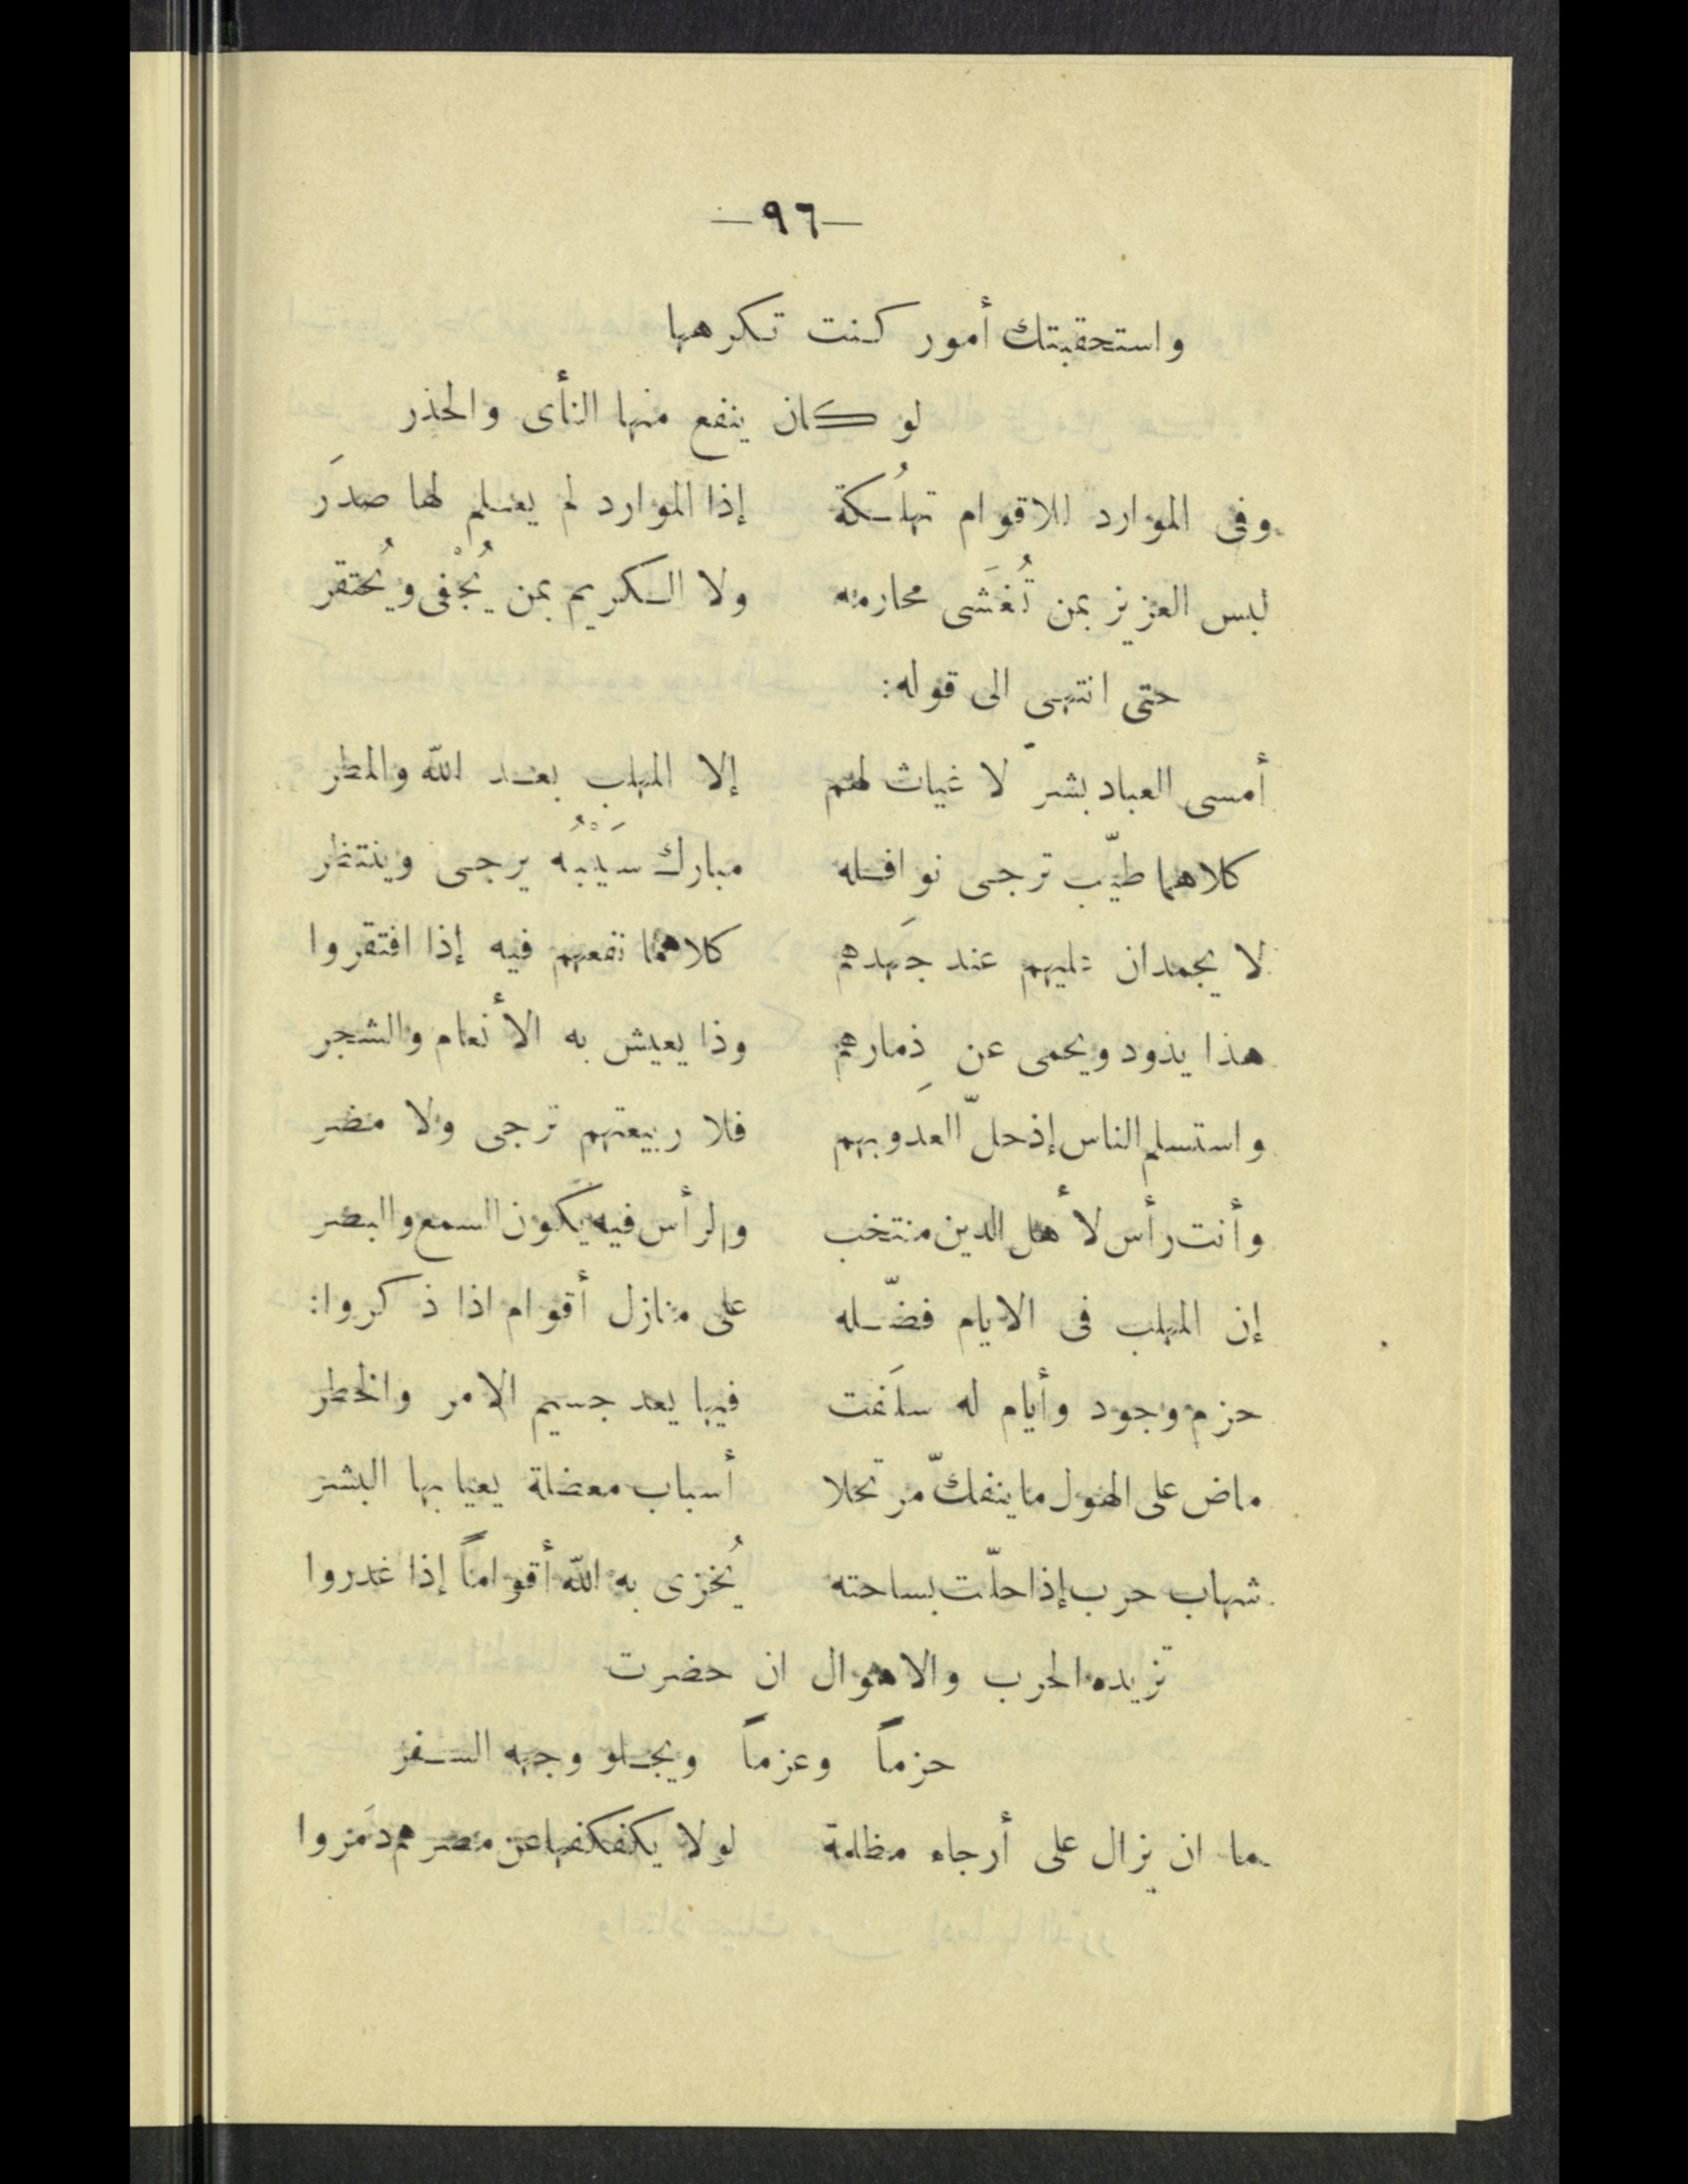 —٩٦—
واستحقبتك أمور كنت تكرهها
لو كان ينفع منها النأى والحذر
وفى الموارد للاقوام تهلُكة إذا الموارد لم يعلم لها صدَر
ليس العزيز بمن تُغشَى محارمه ولا الكريم بمن يُجْفى ويُحتقر
حتى انتهى الى قوله:
أمسى العباد بشرّ لا غياث لهم إلا المهلب بعد الله والمطر
كلاهما طيّب ترجى نوافله مبارك سَيْبُه يرجى وينتظر
لا يجمدان عليهم عند جَهدهم كلاهما نفعهم فيه إذا افتقروا
هذا يذود ويحمى عن ذِمارهم وذا يعيش به الأنعام والشجر
واستسلم الناس إذ حلّ العدو بهم فلا ربيعتهم ترجى ولا مضر
وأنت رأس لأهل الدين منتخب والرأس فيه يكون السمع والبصر
إن المهلب فى الايام فضّله على منازل أقوام اذا ذكروا:
حزم وجود وأيام له سلَفت فيها يعد جسيم الامر والخطر
ماض على الهول ما ينفكّ مرتحلا أسباب معضلة يعيا بها البشر
شهاب حرب إذا حلّت بساحته يُخزى به الله أقواماً إذا غدروا
تزيده الحرب والاهوال ان حضرت
حزماً وعزماً ويجلو وجهه السفر
ما ان يزال على أرجاء مظلمة لولا يكفكفها عن مصرهم دَمَروا